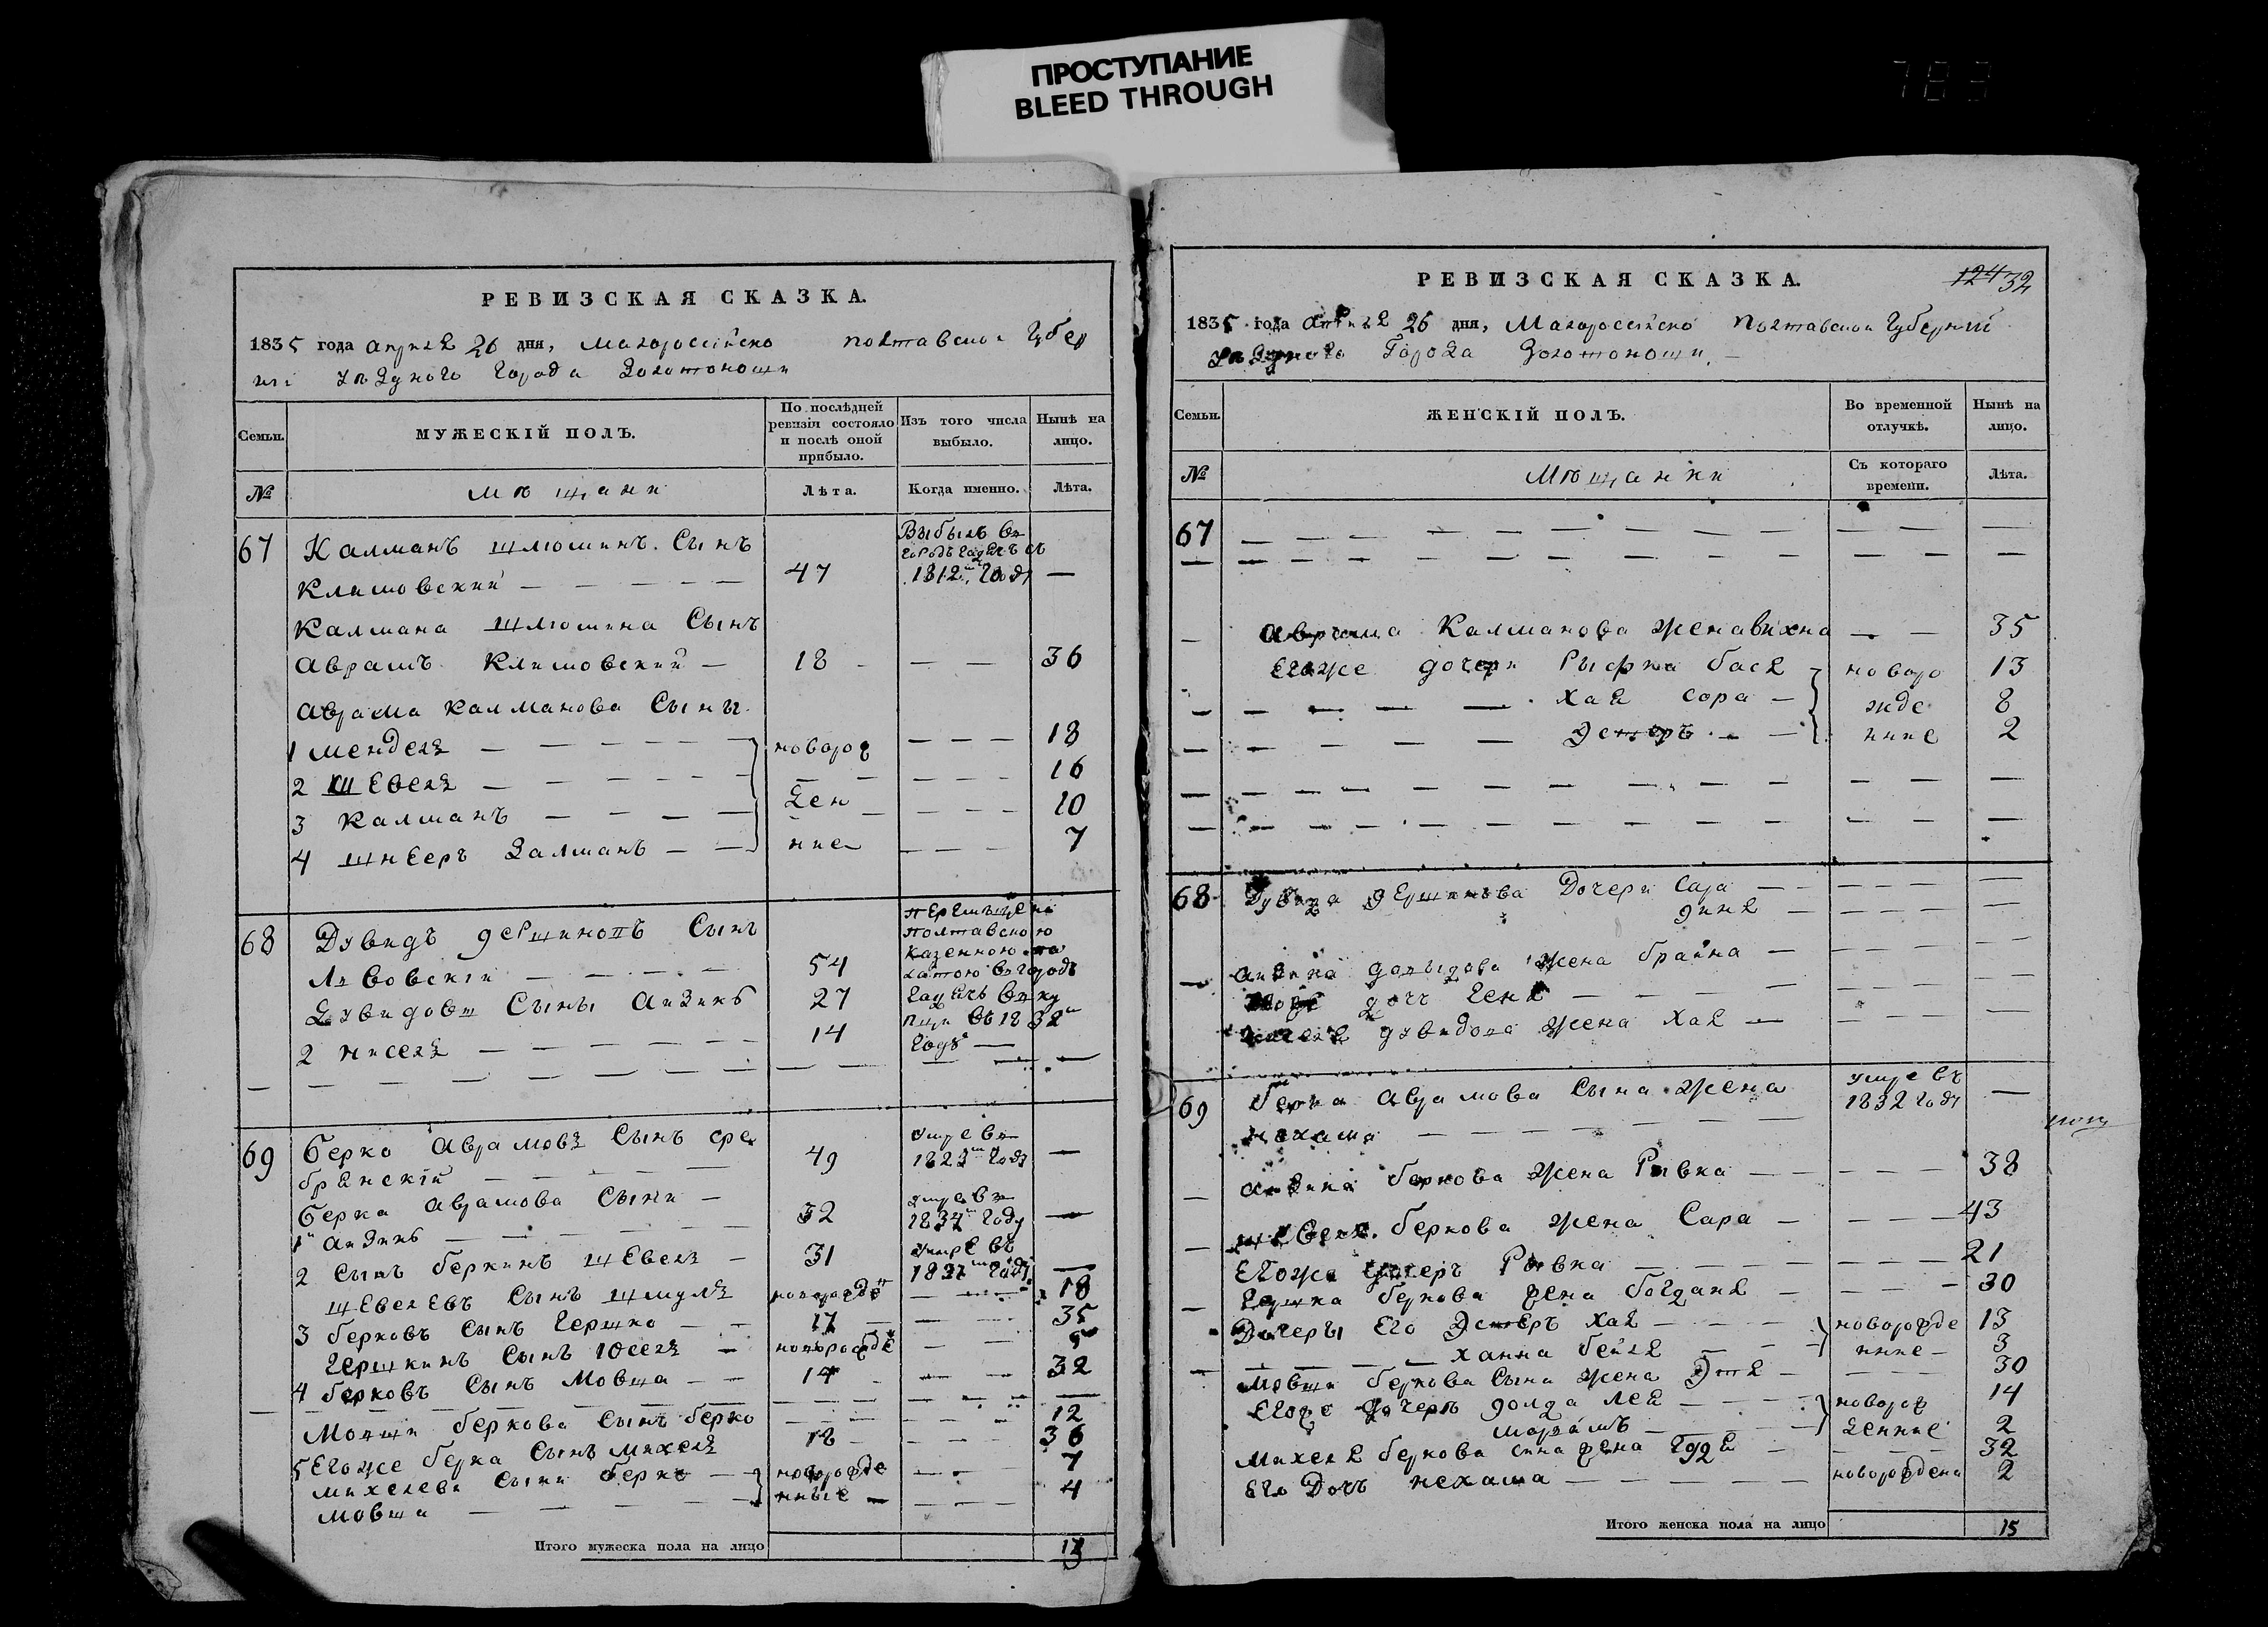 ПРОСТУПАНИЕ
BLEED THROUGH
РЕВИЗСКАЯ СКАЗКА.
1835 года апреля 26 дня, Малоросейско полтавской Губер
нии уездного города Золотоноши
Семьи.
МУЖЕСКІЙ ПОЛЪ.
По последней ревизіи состояло и послѣ оной прибыло.
Изъ того числа выбыло.
Нынѣ на лицо.
№
мѣщани
Лѣта.
Когда именно.
Лѣта.
67 Калманъ шлюминъ Сынъ
Выбылъ въ
Климовский 47 1812 году —
Калмана шлюмина Сынъ
Аврамъ Климовский — 18 — — 36
Аврама Калманова Сыны
1 менделя новорож 18
2 шевеля 16
3 Калманъ ден 10
4 шнееръ Залманъ ние 7
68 Дувидъ Сынъ
Львовскій 54
Дувидови Сыны Аизикъ 27
2 кисель 14
перемещени
полтавскою
казенною па
латою в городъ
гадичъ в ку
пци въ 1832
годъ
69 Берко Аврамовъ Сынъ сре
бранскій 49 умре в 1823 году —
Берка аврамова Сыни
1й аизикъ 32 умре в 1834 году —
2 Сынъ беркинъ шевеля 31 умре въ —
шевелевъ Сынъ шмуля новорожде 18
3 берковъ Сынъ гершко 17 35
гершкинъ Сынъ юселя новорожде
4 берковъ Сынъ мовша 14 32
Мовши беркова Сынъ берко 12
5 Егоже берка Сынъ михеля 18 36
михелеви Сыни берко новорожде 7
мовша нные 4
Итого мужеска пола на лицо
РЕВИЗСКАЯ СКАЗКА.
124 32
1835 года апреля 26 дня, Малоросейско полтавской Губерний
уездного Города Золотоноши
Семьи.
ЖЕНСКІЙ ПОЛЪ.
Во временной отлучкѣ.
Нынѣ на лицо.
№
Мѣщанки
Съ котораго времени.
Лѣта.
67
аврама Калманова жена вихна — — 35
Егоже дочери Рыфка бася новоро 13
хая сора жде 8
Эстеръ нние 2
68 Дувида Дочери Сара
дина
аизика давыдова жена браина
дочъ геня
дувидова жена хая
69 берка аврамова Сына жена умре въ
нехама 1832 году —
аизика беркова жена Ривка 38
шевеля беркова жена Сара 43
Егоже дочеръ Ривка 21
гершка беркова жена богдана 30
Дочеры Его Эстеръ хая новорожде 13
ханна бейля нние 3
мовши беркова Сина жена Этя 30
Егоже дочеръ голда лея новорож 14
марямъ денние 2
михеля беркова сина жена 32
Его Дочъ нехама новорождена 2
Итого женска пола на лицо 15